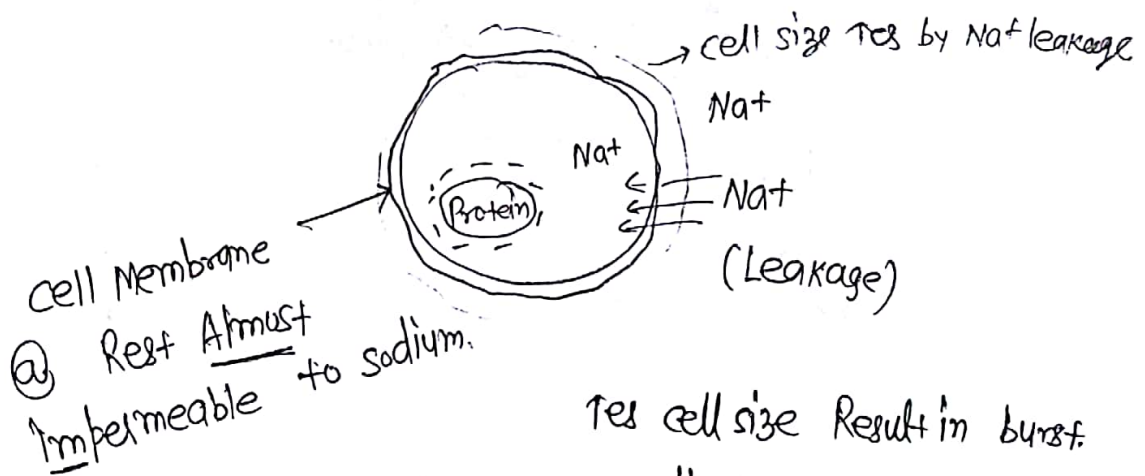 → cell size ↑es by Na+ leakage
Na+
Na+
Na+
Protein
(Leakage)
cell Membrane
@ Rest Almost
impermeable to sodium.
↑es cell size Result in burst.